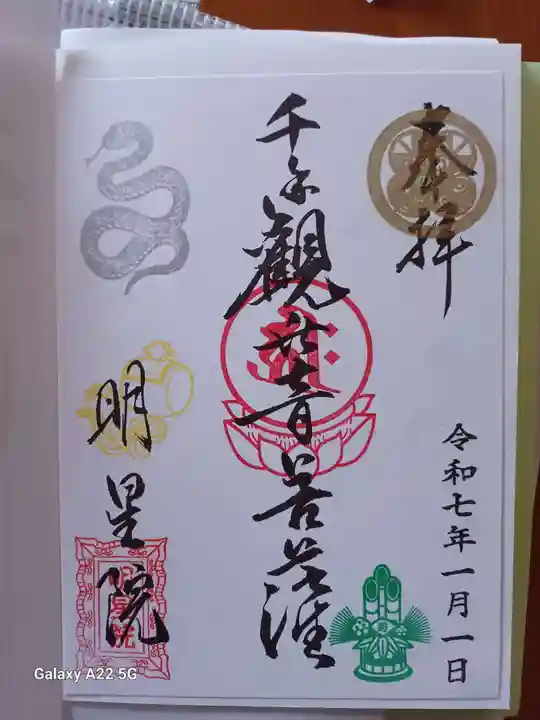 奉拝
令和七年一月一日
千手觀世音菩薩
明星院
Galaxy A22 5G